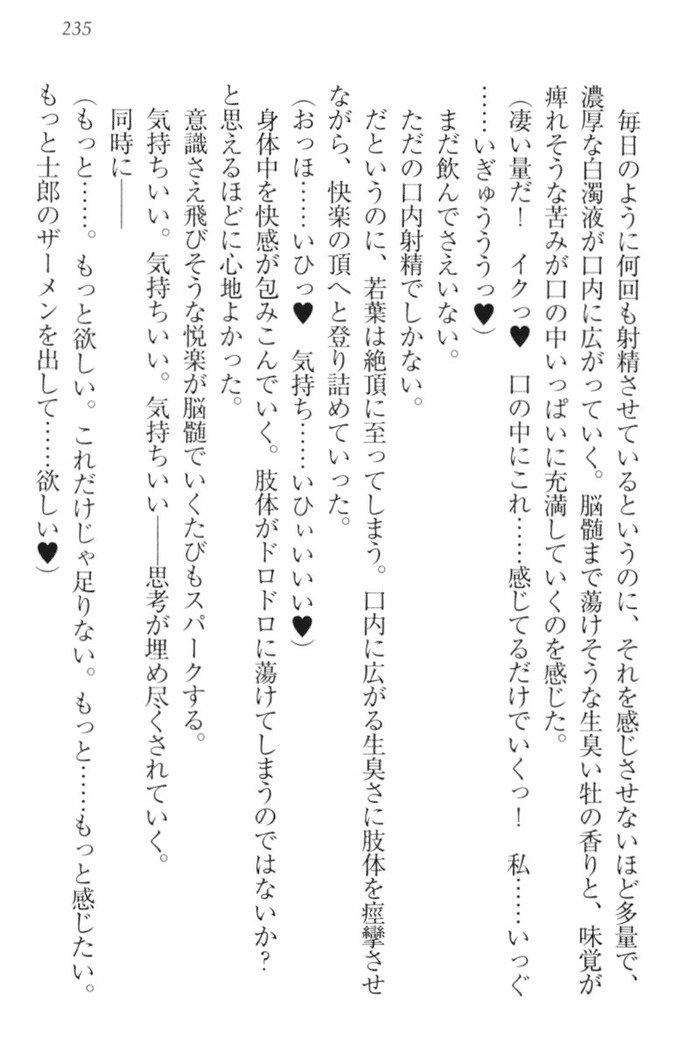 235
毎日のように何回も射精させているというのに、それを感じさせないほど多量で、
濃厚な白濁液が口内に広がっていく。脳髄まで蕩けそうな生臭い牡の香りと、味覚が
痺れそうな苦みが口の中いっぱいに充満していくのを感じた。
(凄い量だ!　イクっ♥　口の中にこれ……感じてるだけでいくっ!　私……いっぐ
……いぎゅうううっ♥)
まだ飲んでさえいない。
ただの口内射精でしかない。
だというのに、若葉は絶頂に至ってしまう。口内に広がる生臭さに肢体を痙攣させ
ながら、快楽の頂へと登り詰めていった。
(おっほ……いひっ♥　気持ち……いひぃいいい♥)
身体中を快感が包みこんでいく。肢体がドロドロに蕩けてしまうのではないか?
と思えるほどに心地よかった。
意識さえ飛びそうな悦楽が脳髄でいくたびもスパークする。
気持ちいい。気持ちいい。気持ちいい――思考が埋め尽くされていく。
同時に――
(もっと……。もっと欲しい。これだけじゃ足りない。もっと……もっと感じたい。
もっと士郎のザーメンを出して……欲しい♥)